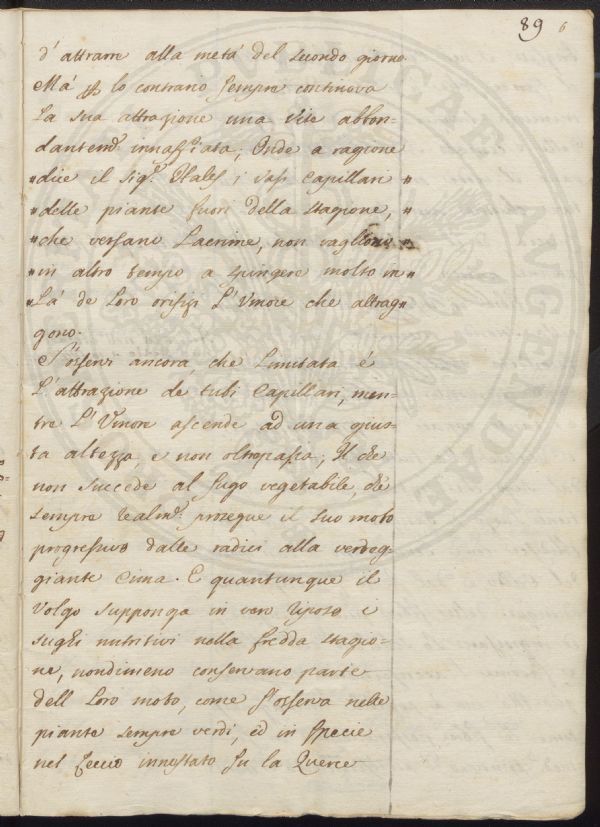 89 6
d'attrarre alla metá del secondo giorno.
Má p lo contrario sempre continova
la sua attrazione una vite abbon-
dantem.e innaffiata; Onde a ragione
"dice il Sig.r Hales i vasi capillari "
"delle piante fuori della stagione, "
"che versano Lacrime, non vagliono "
"in altro tempo a spingere molto in "
"Lá de loro orifizi L'Umore che attrag"
gono.
S'osservi ancora, che Limitata é
L'attrazione de tubi Capillari, men-
tre L'Umore ascende ad una gius-
ta altezza, e non oltrepassa; Il che
non succede al sugo vegetabile, ch'è
sempre realm.e prosegue il suo moto
progressivo dalle radici alla verdeg-
giante Cima. E quantunque il
Volgo supponga in vero riposo i
sughi nutritivi nella fredda stagio-
ne, nondimeno conservano parte
dell Loro moto, come s'osserva nelle
piante sempre verdi, ed in specie
nel Leccio innestato su la Querce